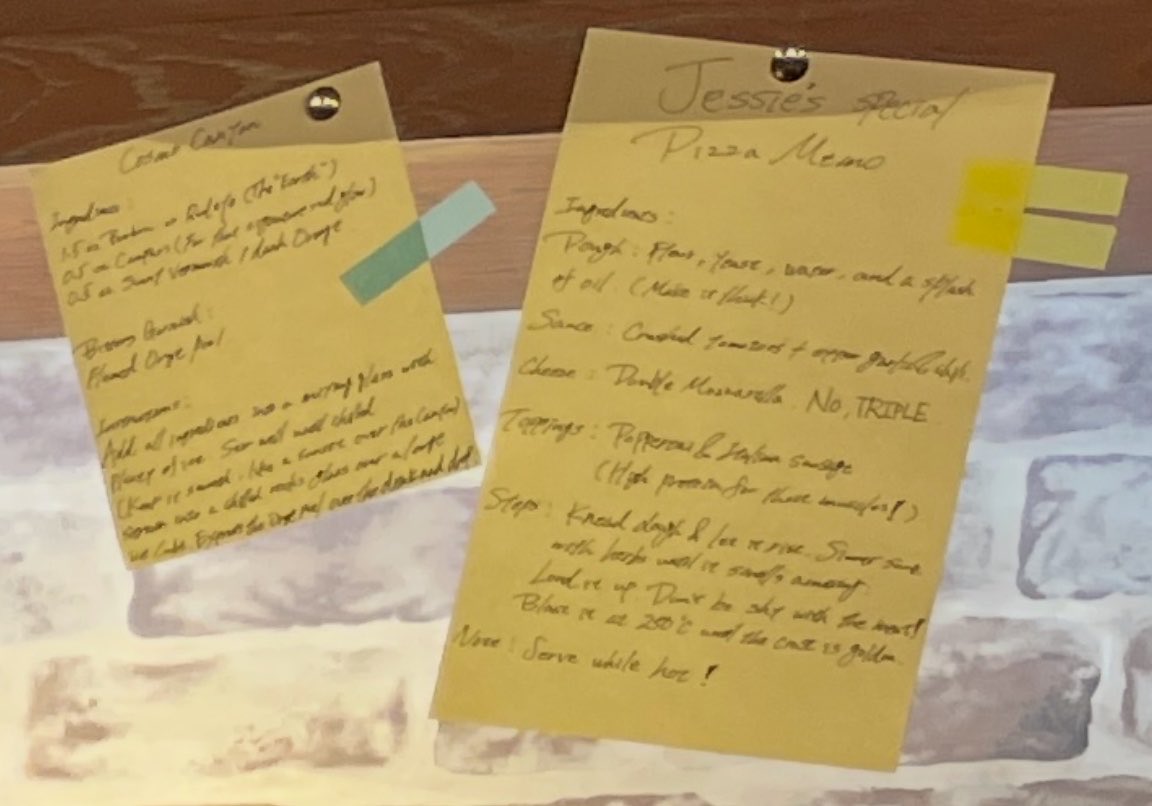 Cosmo Canyon
Ingredients:
1.5 oz Bourbon or (The "Earth")
0.5 oz Campari (For that red glow)
0.5 oz Sweet Vermouth / Orange
Garnish:
Flamed Orange Peel
Instructions:
Add all ingredients into a mixing glass with
Plenty of ice. Stir well until chilled
(Keep it smooth, like a sunset over the Canyon)
Strain into a chilled rocks glass over a large
ice Cube. Express the Orange Peel over the drink and drop
Jessie's special
Pizza Memo
Ingredients:
Dough: Flour, Yeast, water, and a splash
of oil. (Make it thick!)
Sauce: Crushed tomatoes + garlic
Cheese: Double Mozzarella. No, TRIPLE
Toppings: Pepperoni & Italian sausage
(High protein for those muscles!)
Steps: Knead dough & let it rise. Simmer sauce
with herbs until it smells amazing.
Load it up. Don't be shy with the meat!
Blast it at 250°C until the crust is golden.
Note: Serve while hot!